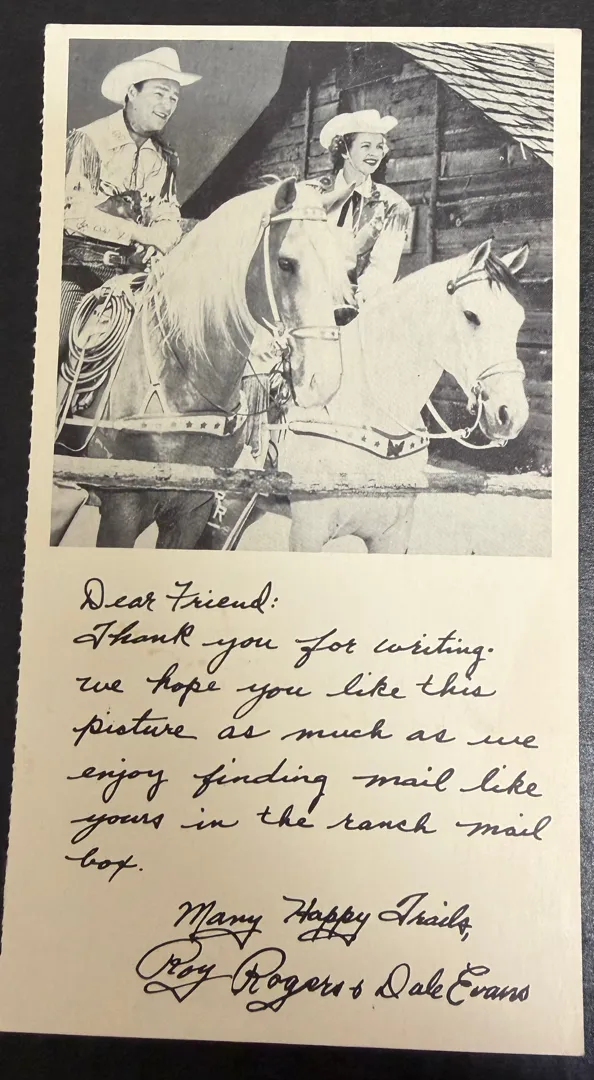 RR
Dear Friend:
Thank you for writing.
We hope you like this
picture as much as we
enjoy finding mail like
yours in the ranch mail
box.
Many Happy Trails,
Roy Rogers & Dale Evans